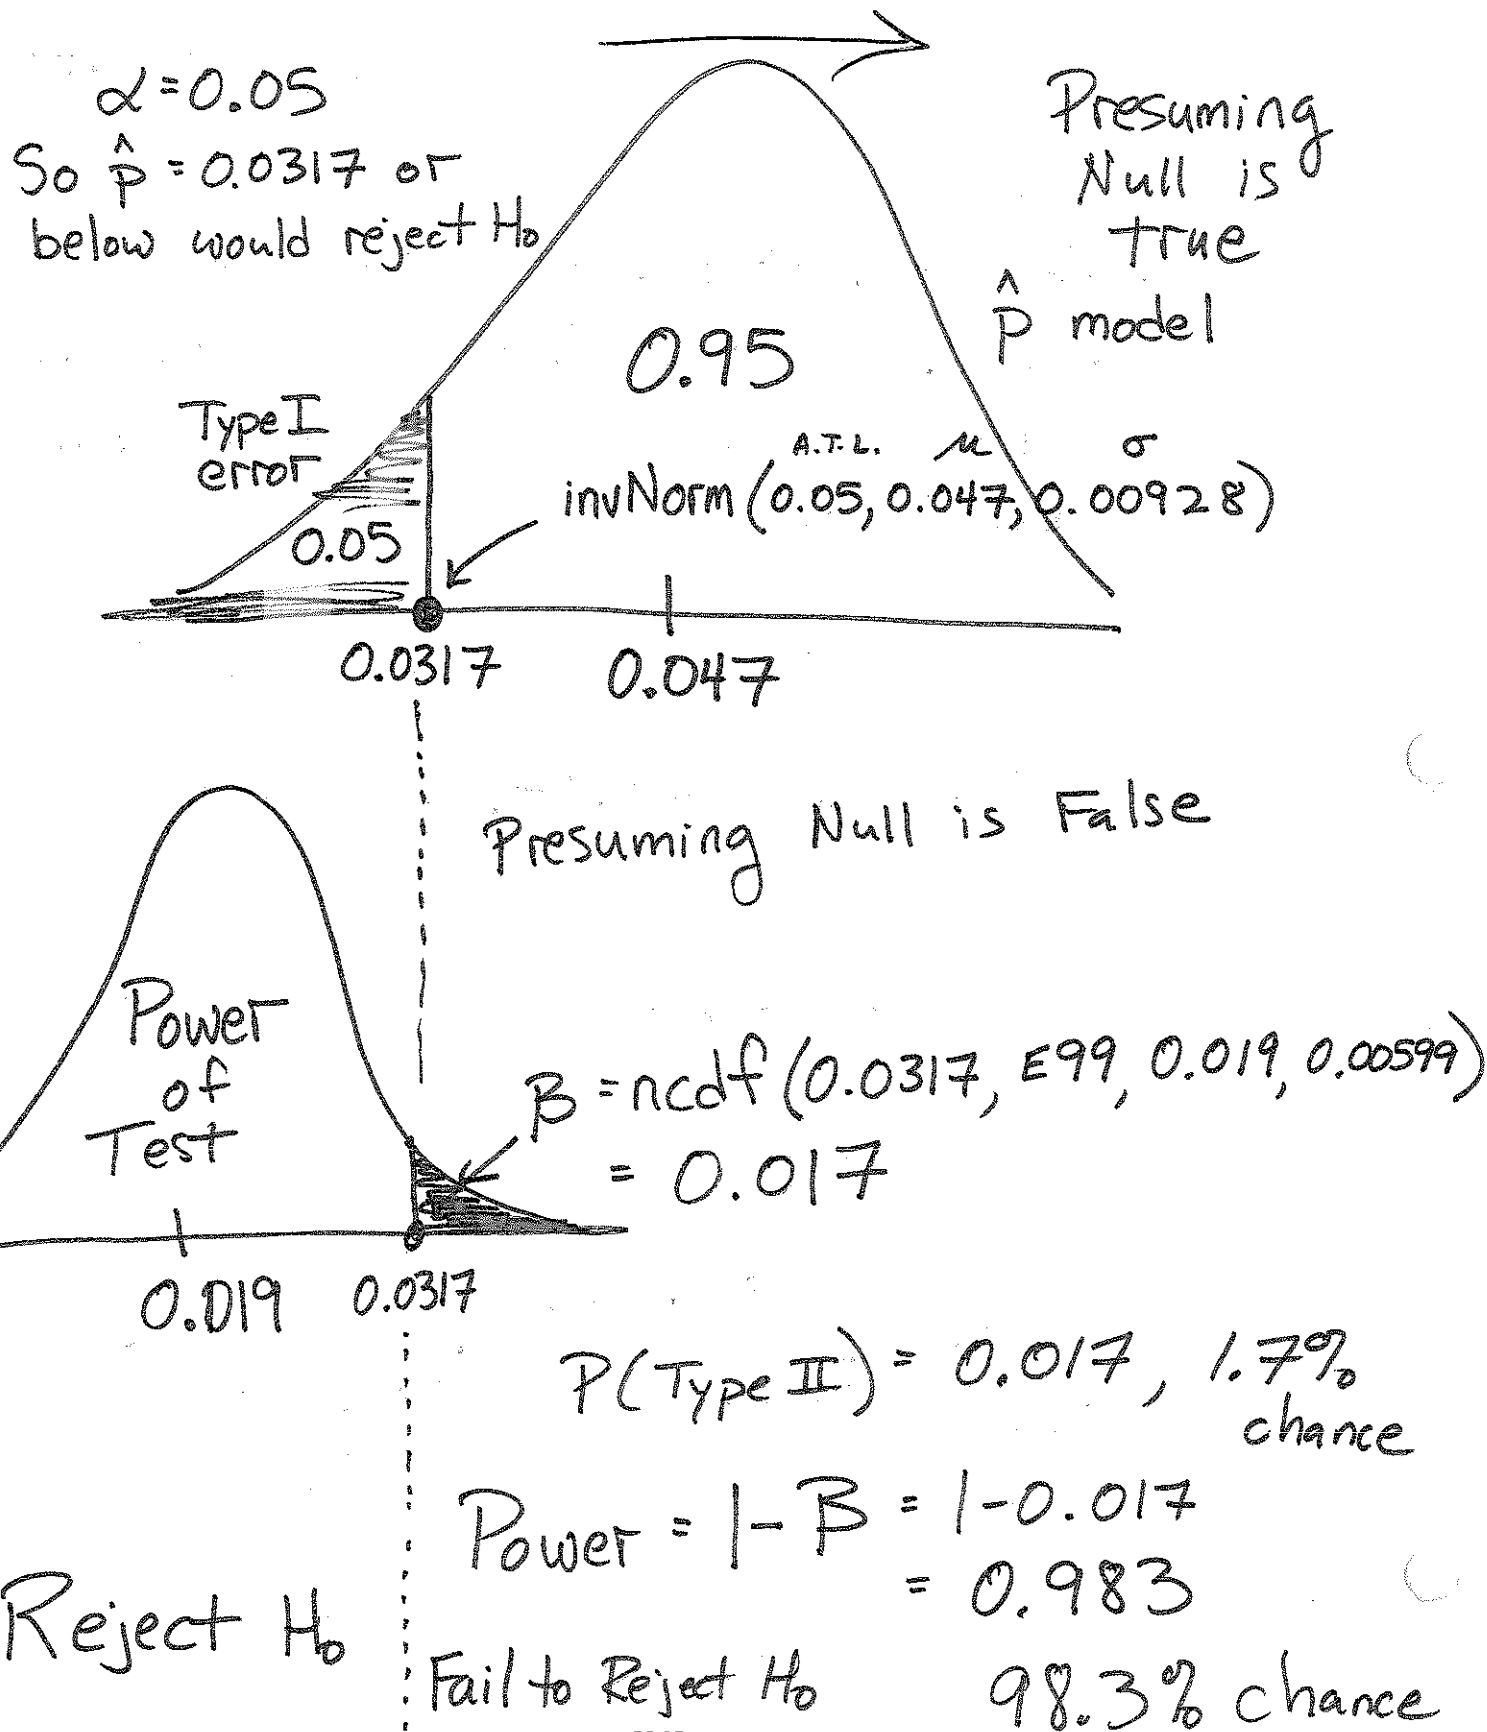 α = 0.05
So p̂ = 0.0317 or
below would reject H₀
Presuming
Null is
true
p̂ model
0.95
Type I
error
0.05
A.T.L. μ σ
invNorm(0.05, 0.047, 0.00928)
0.0317
0.047
Presuming Null is False
Power
of
Test
β = ncdf(0.0317, E99, 0.019, 0.00599)
= 0.017
0.019
0.0317
P(Type II) = 0.017, 1.7%
chance
Power = 1 - β = 1 - 0.017
= 0.983
Reject H₀
Fail to Reject H₀
98.3% chance